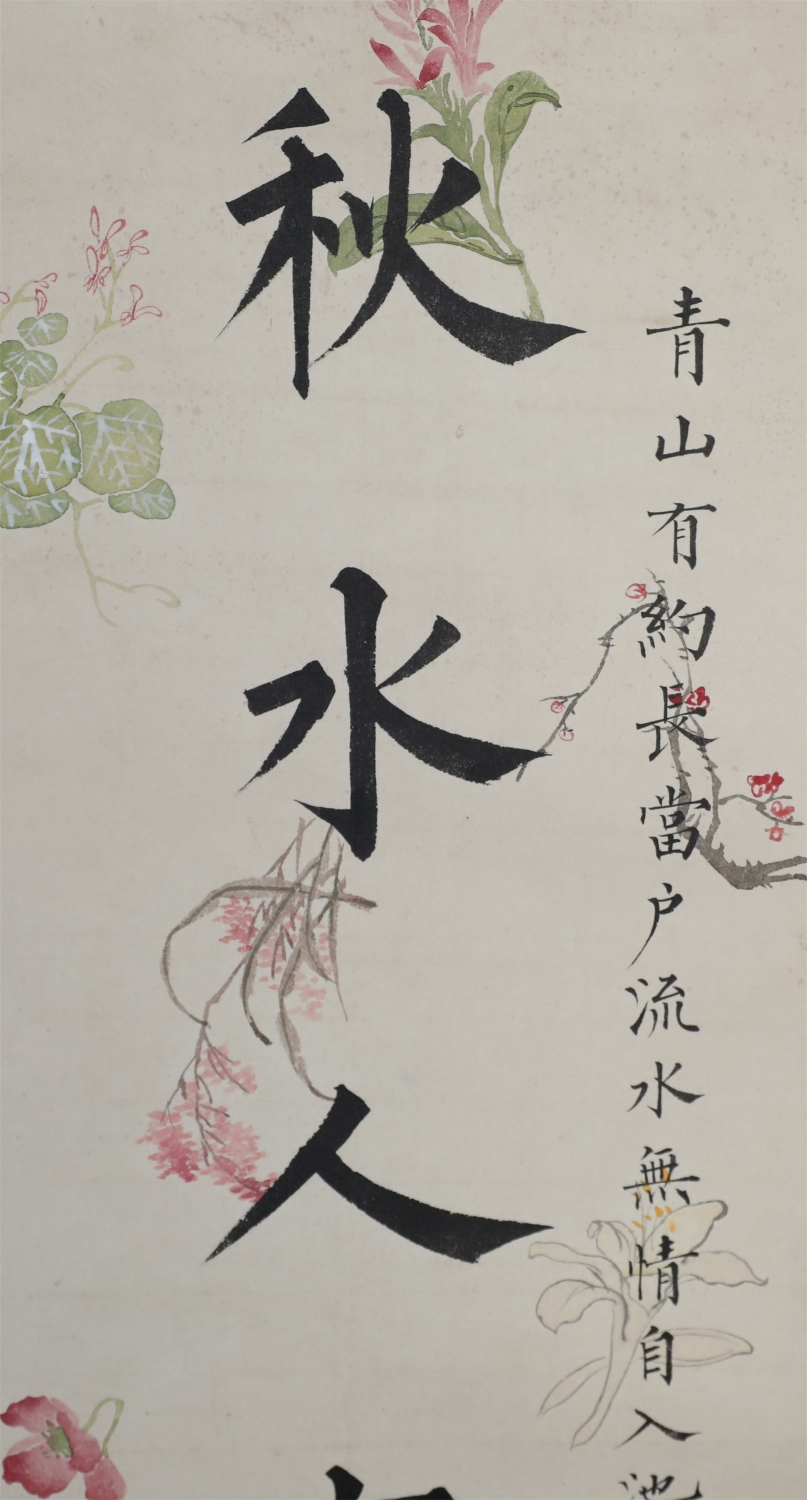 青山有約長當户流水無情自入池
秋水人